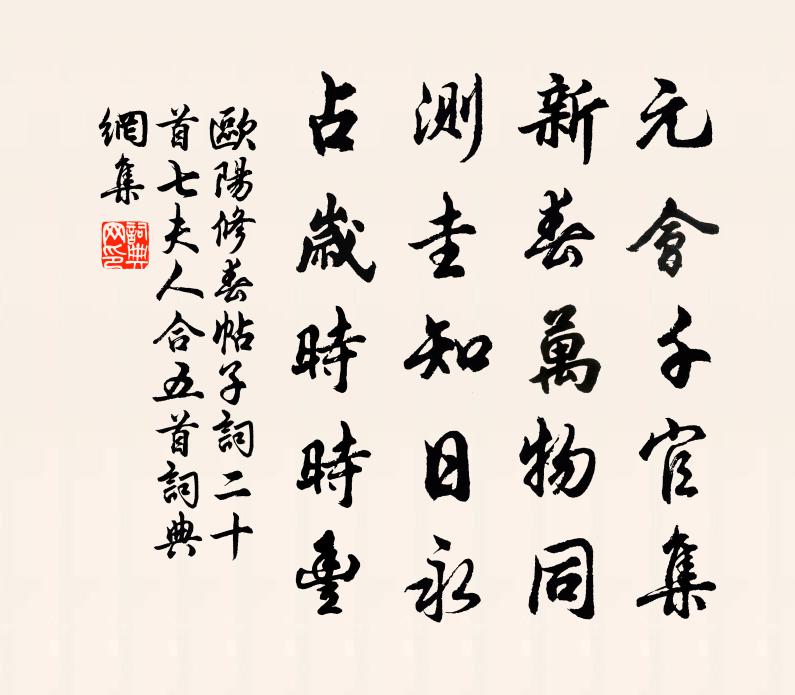 元會千官集
新春萬物同
測圭知日永
占歲時時豐
歐陽修春帖子詞二十
首七夫人合五首詞典
網集
詞典
网印